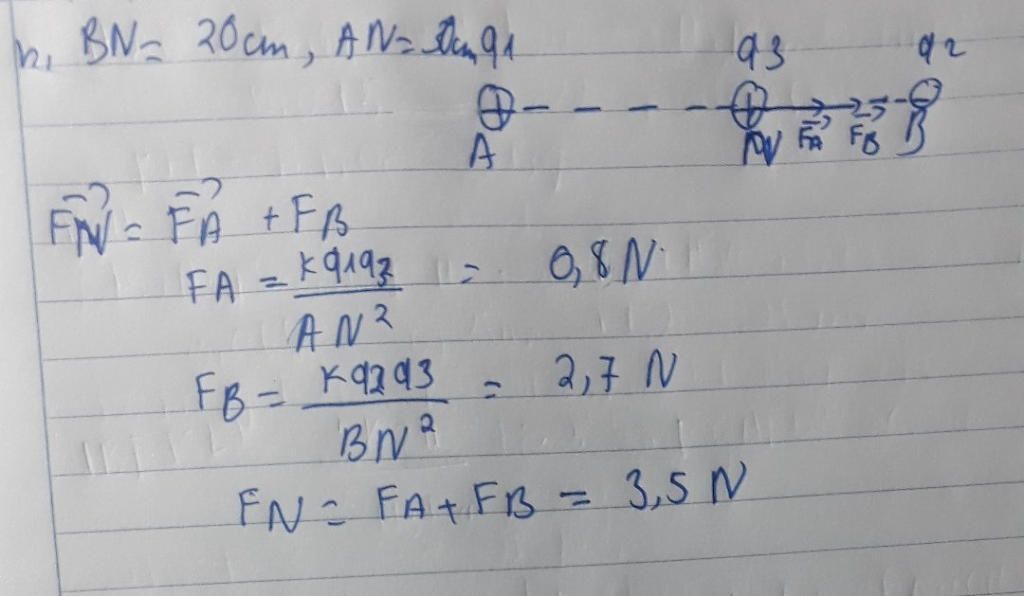 b, BN = 20cm, AN =
q1 q3 q2
A N FA→ FB→ B
FN→ = FA→ + FB
FA = kq1q3 / AN² = 0,8 N
FB = kq2q3 / BN² = 2,7 N
FN = FA + FB = 3,5 N